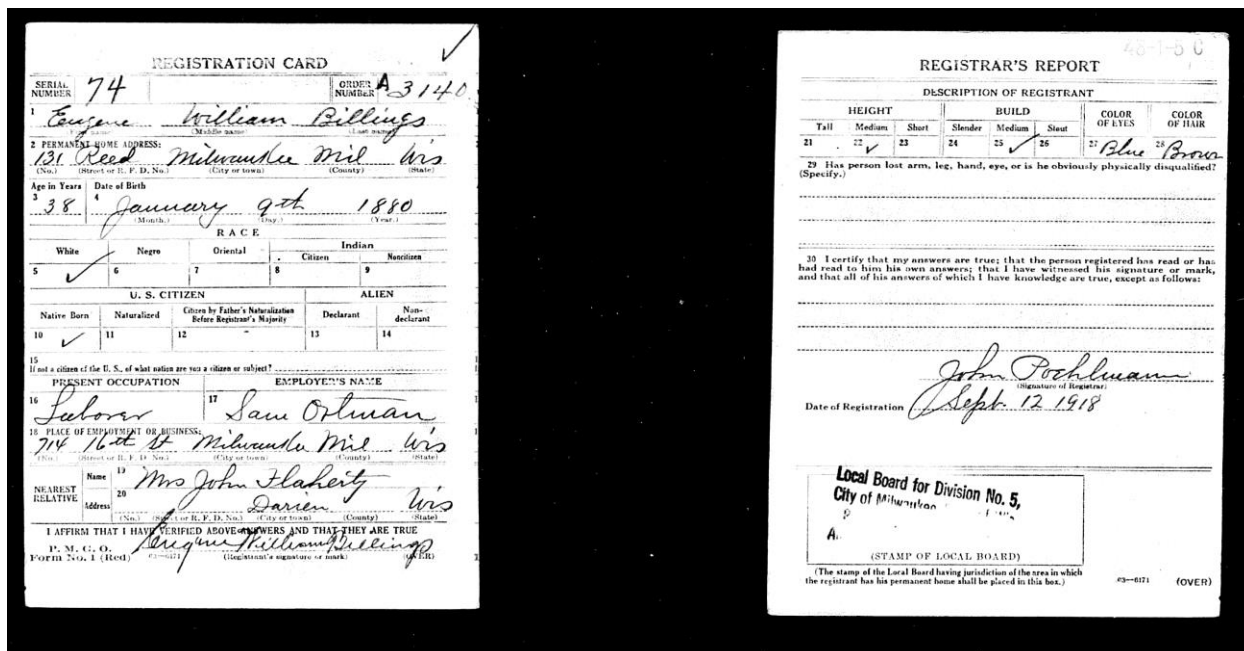 REGISTRATION CARD
SERIAL NUMBER 74 ORDER NUMBER A 3140
1 Eugene William Billings
(First name) (Middle name) (Last name)
2 PERMANENT HOME ADDRESS:
131 Reed Milwaukee Mil Wis
(No.) (Street or R. F. D. No.) (City or town) (County) (State)
Age in Years Date of Birth
3 38 4 January 9th 1880
(Month.) (Day.) (Year.)
RACE
White Negro Oriental Indian
Citizen Noncitizen
5 ✓ 6 7 8 9
U. S. CITIZEN ALIEN
Native Born Naturalized Citizen by Father's Naturalization Before Registrant's Majority Declarant Non-declarant
10 ✓ 11 12 13 14
15
If not a citizen of the U. S., of what nation are you a citizen or subject?
PRESENT OCCUPATION EMPLOYER'S NAME
16 Laborer 17 Sam
18 PLACE OF EMPLOYMENT OR BUSINESS:
714 16th St Milwaukee Mil Wis
(No.) (Street or R. F. D. No.) (City or town) (County) (State)
NEAREST RELATIVE
Name 19 Mrs John Flaherty
Address 20 Darien Wis
(No.) (Street or R. F. D. No.) (City or town) (County) (State)
I AFFIRM THAT I HAVE VERIFIED ABOVE ANSWERS AND THAT THEY ARE TRUE
P. M. G. O.
Form No. 1 (Red) 03—6171 Eugene William Billings
(Registrant's signature or mark) (OVER)
48-1-5 C
REGISTRAR'S REPORT
DESCRIPTION OF REGISTRANT
HEIGHT BUILD COLOR OF EYES COLOR OF HAIR
Tall Medium Short Slender Medium Stout
21 22 ✓ 23 24 25 ✓ 26 27 Blue 28 Brown
29 Has person lost arm, leg, hand, eye, or is he obviously physically disqualified?
(Specify.)
30 I certify that my answers are true; that the person registered has read or has
had read to him his own answers; that I have witnessed his signature or mark,
and that all of his answers of which I have knowledge are true, except as follows:
John Pochlmann
(Signature of Registrar)
Date of Registration Sept. 12 1918
Local Board for Division No. 5,
City of Milwaukee
A.
(STAMP OF LOCAL BOARD)
(The stamp of the Local Board having jurisdiction of the area in which
the registrant has his permanent home shall be placed in this box.)
03—6171 (OVER)